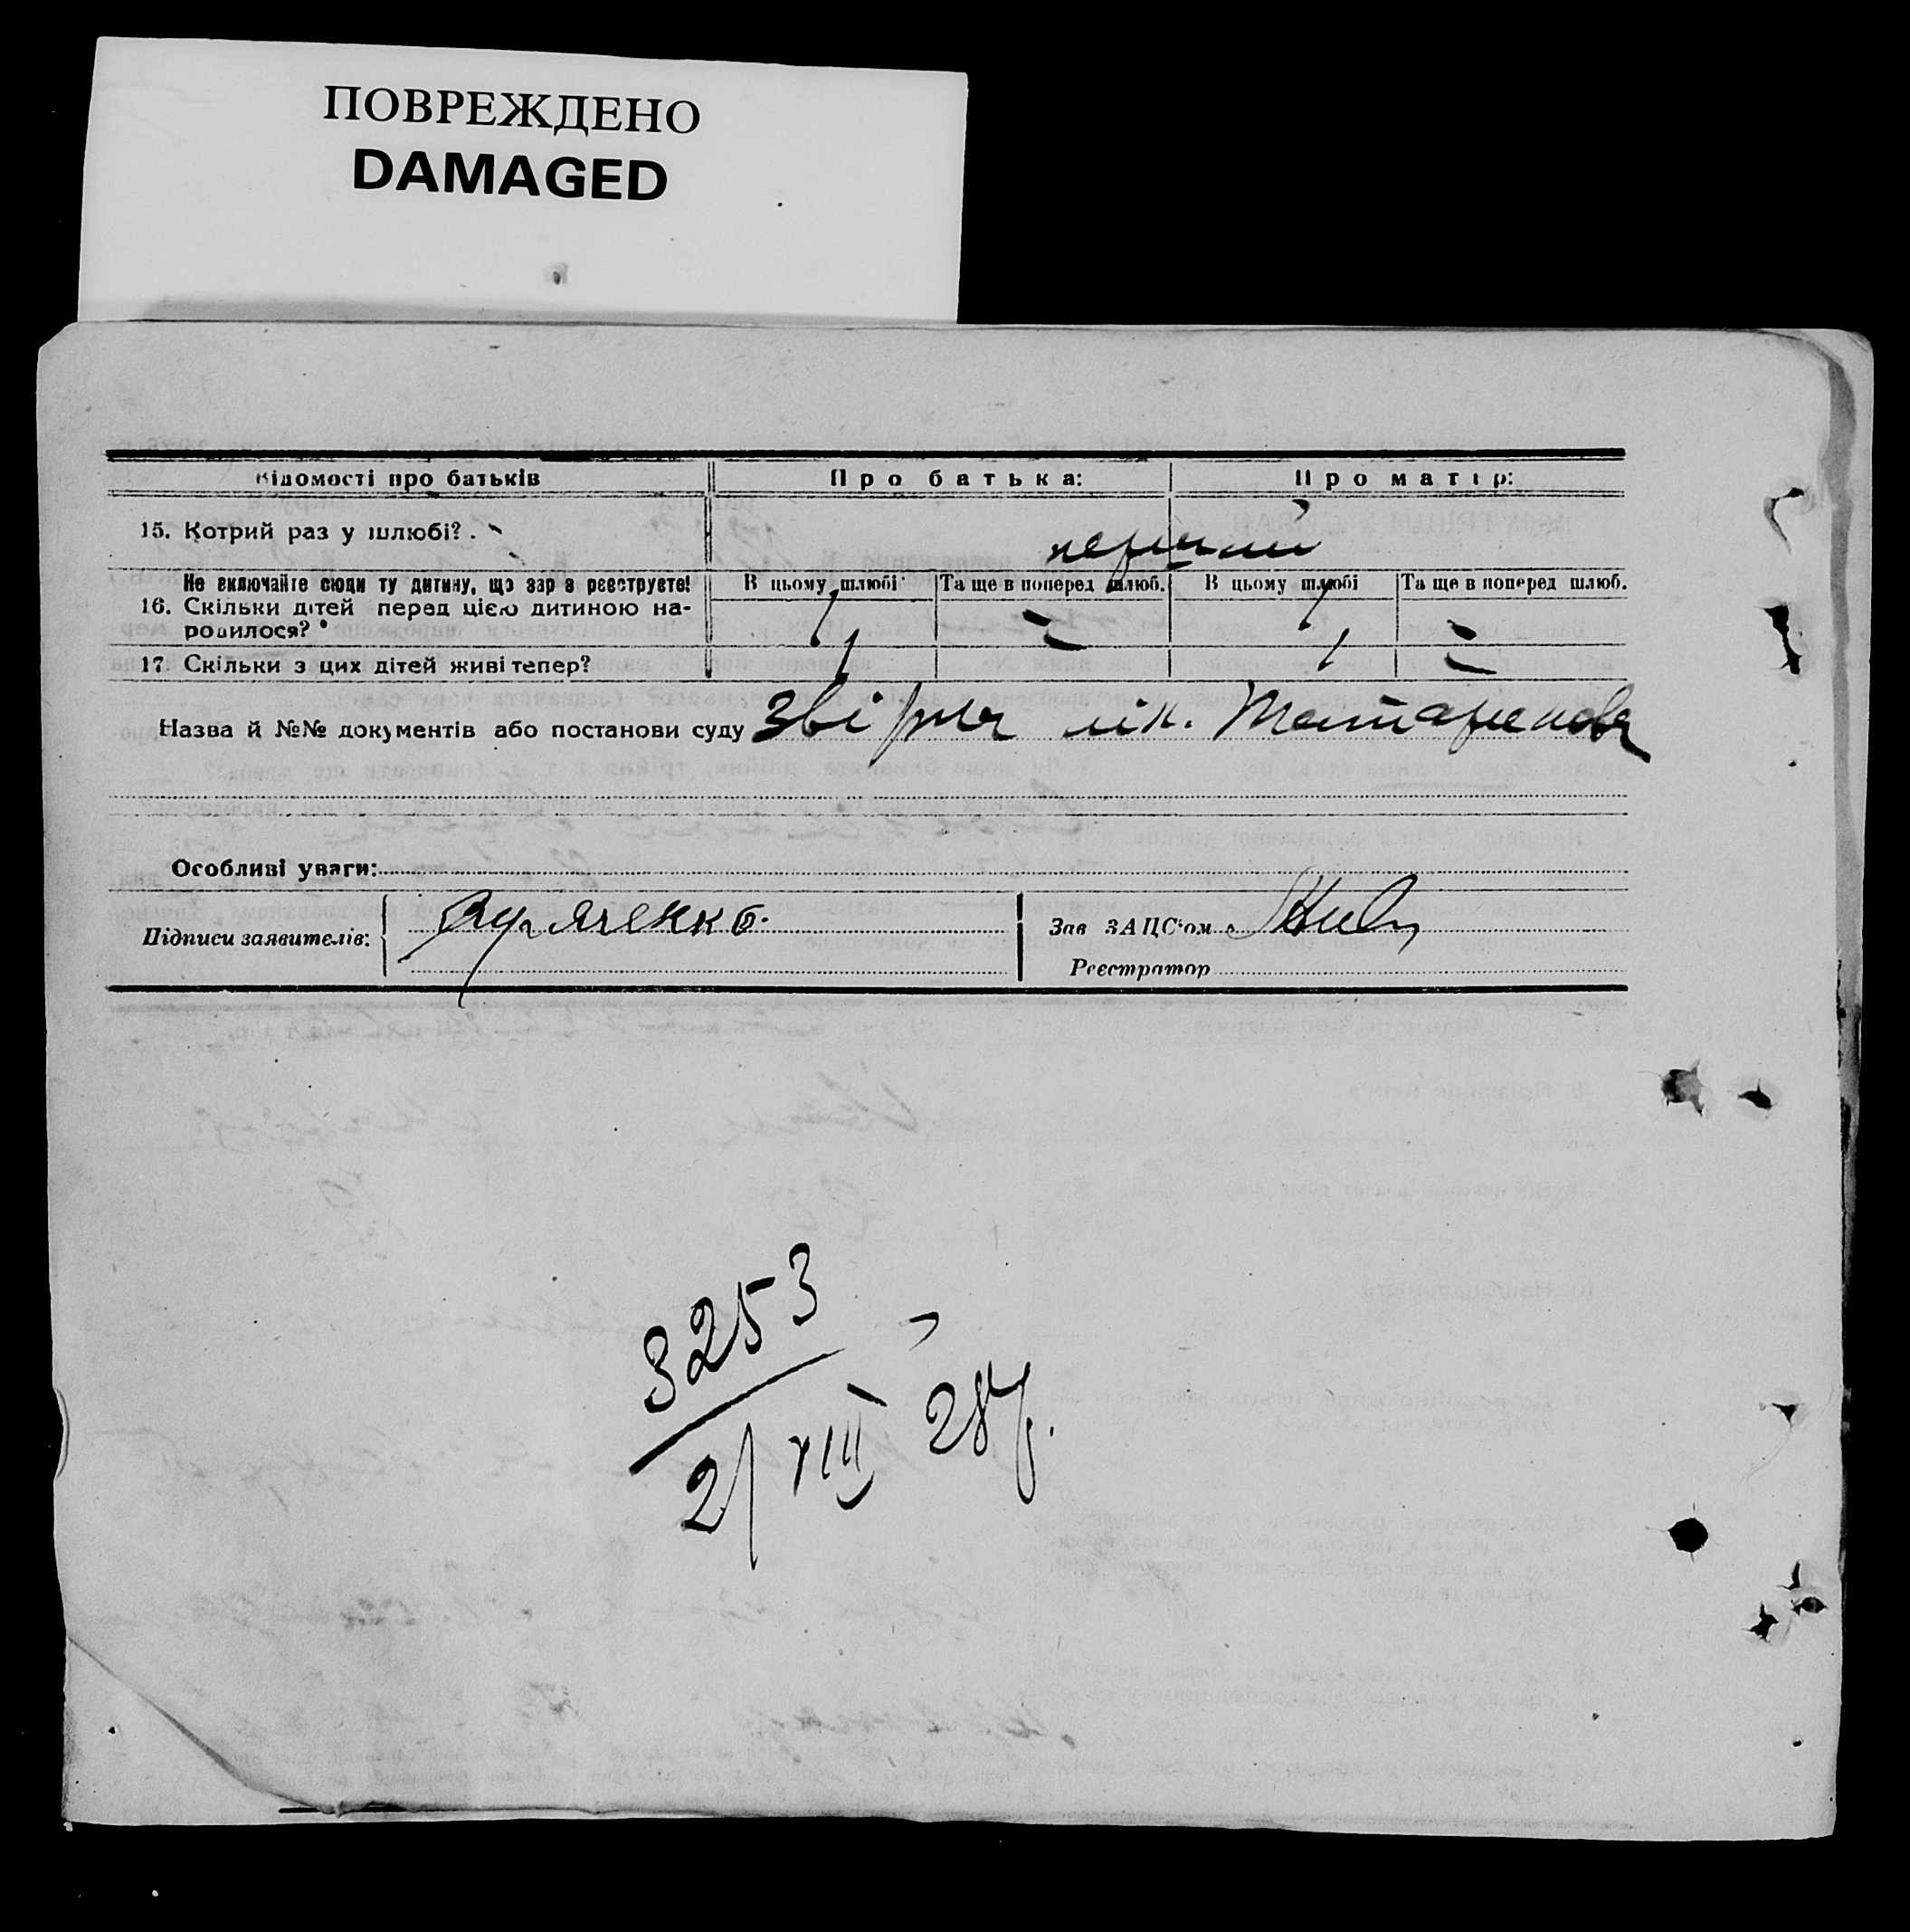 ПОВРЕЖДЕНО
DAMAGED
Відомості про батьків
Про батька:
Про матір:
15. Котрий раз у шлюбі?
перший
Не включайте сюди ту дитину, що зараз реєструєте!
В цьому шлюбі
Та ще в поперед шлюб.
В цьому шлюбі
Та ще в поперед шлюб.
16. Скільки дітей перед цією дитиною на-
родилося?
1 — 1 —
17. Скільки з цих дітей живі тепер?
1 — 1 —
Назва й №№ документів або постанови суду
лік.
Особливі уваги:
Підписи заявителів:
Зав ЗАЦС'ом
Реєстратор
3253
21 VIII 28 р.